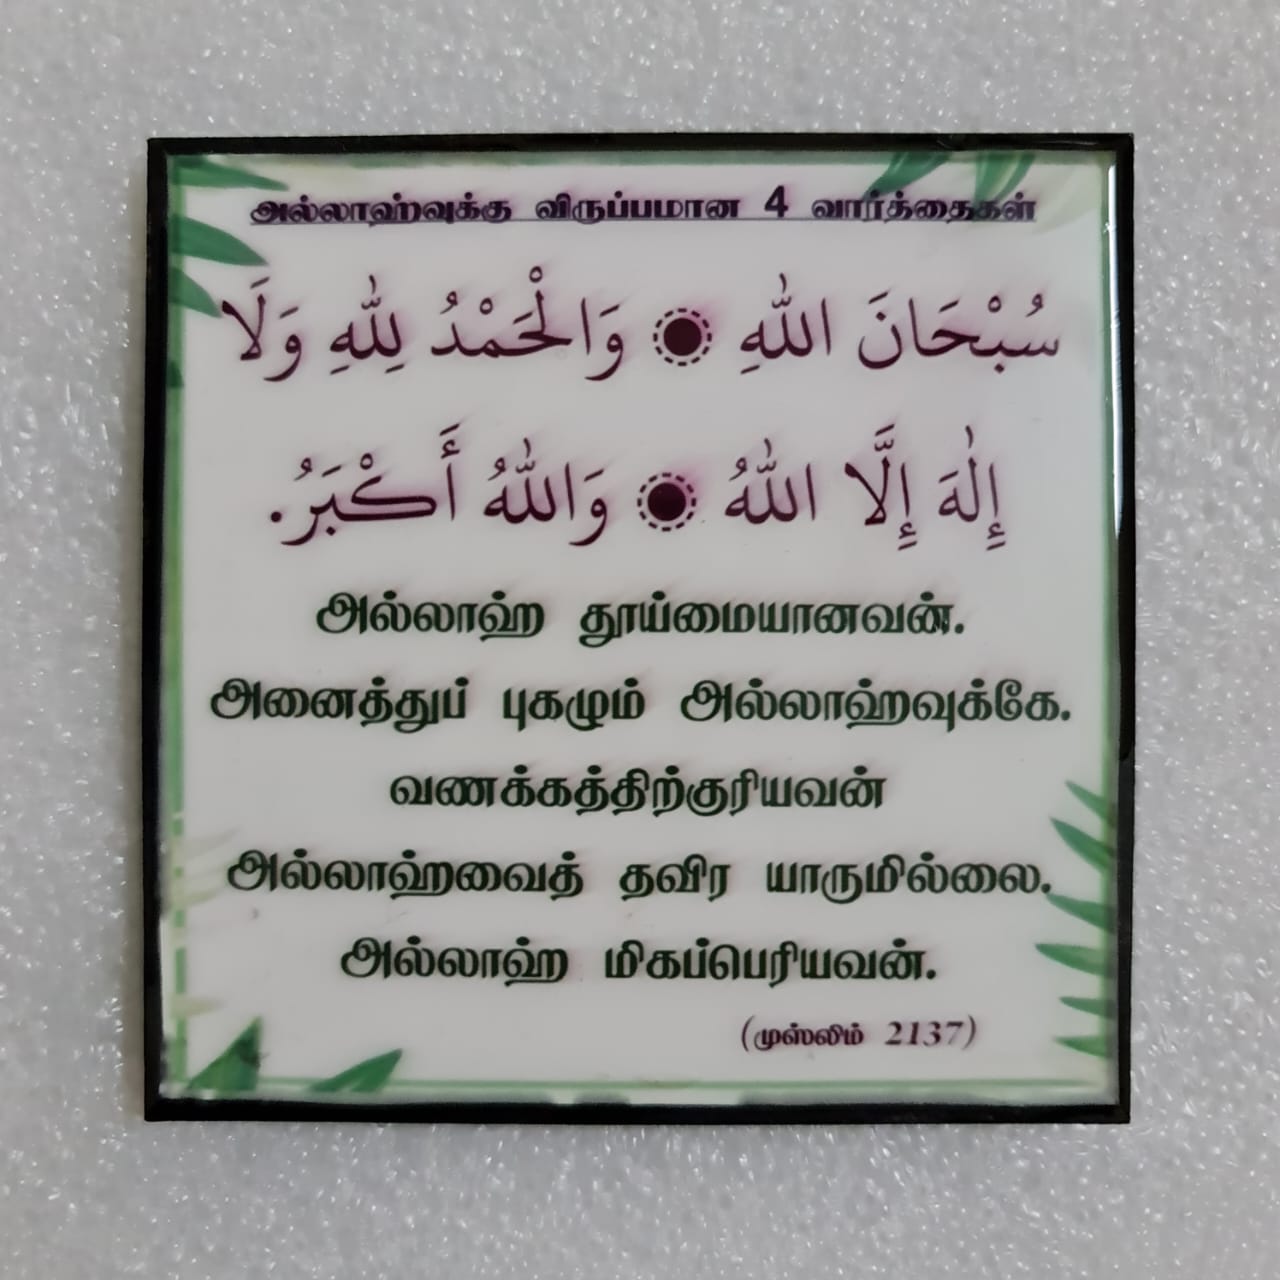 அல்லாஹ்வுக்கு விருப்பமான 4 வார்த்தைகள்
سُبْحَانَ اللّٰهِ ۝ وَالْحَمْدُ لِلّٰهِ وَلَا
إِلٰهَ إِلَّا اللّٰهُ ۝ وَاللّٰهُ أَكْبَرُ.
அல்லாஹ் தூய்மையானவன்.
அனைத்துப் புகழும் அல்லாஹ்வுக்கே.
வணக்கத்திற்குரியவன்
அல்லாஹ்வைத் தவிர யாருமில்லை.
அல்லாஹ் மிகப்பெரியவன்.
(முஸ்லிம் 2137)